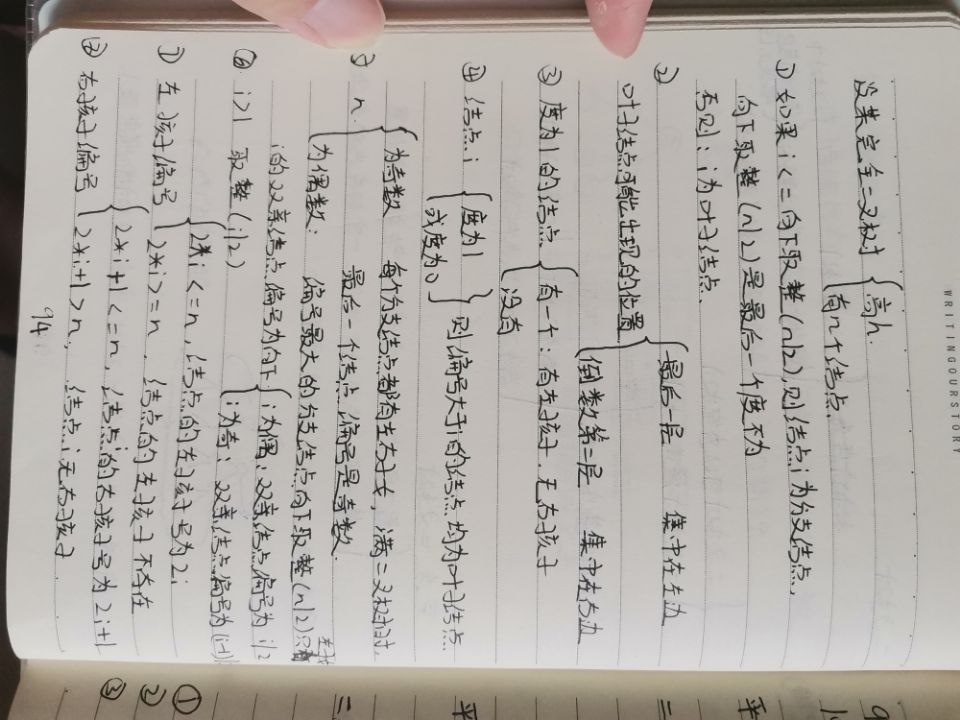 WRITINGOURSTORY
设某完全二叉树 { 高h.
有n个结点.
① 如果 i<=向下取整(n/2),则结点i为分支结点,
向下取整(n/2)是最后一个度不为
否则:i为叶子结点.
② 叶子结点可能出现的位置 { 最后一层 集中在左边
倒数第二层 集中在右边
③ 度为1的结点 { 有一个:有左孩子.无右孩子
没有
④ 结点i { 度为1
或度为0 } 则编号大于i的结点均为叶子结点
⑤ n. { 为奇数 每个分支结点都有左右子女,满二叉树时,
最后一个结点编号是奇数.
为偶数. 编号最大的分支结点向下取整(n/2)只有
⑥ i>1 i的双亲结点编号为向下
取整(i/2) { i为偶:双亲结点编号为i/2
i为奇:双亲结点编号为(i-1)
⑦ 左孩子编号 { 2*i<=n,结点的左孩子号为2i
2*i>=n,结点的左子孩子不存在
⑧ 右孩子编号 { 2*i+1<=n,结点i的右孩子号为2i+1
2*i+1>n,结点i无右孩子.
94
平
二
平
二
①
②
③